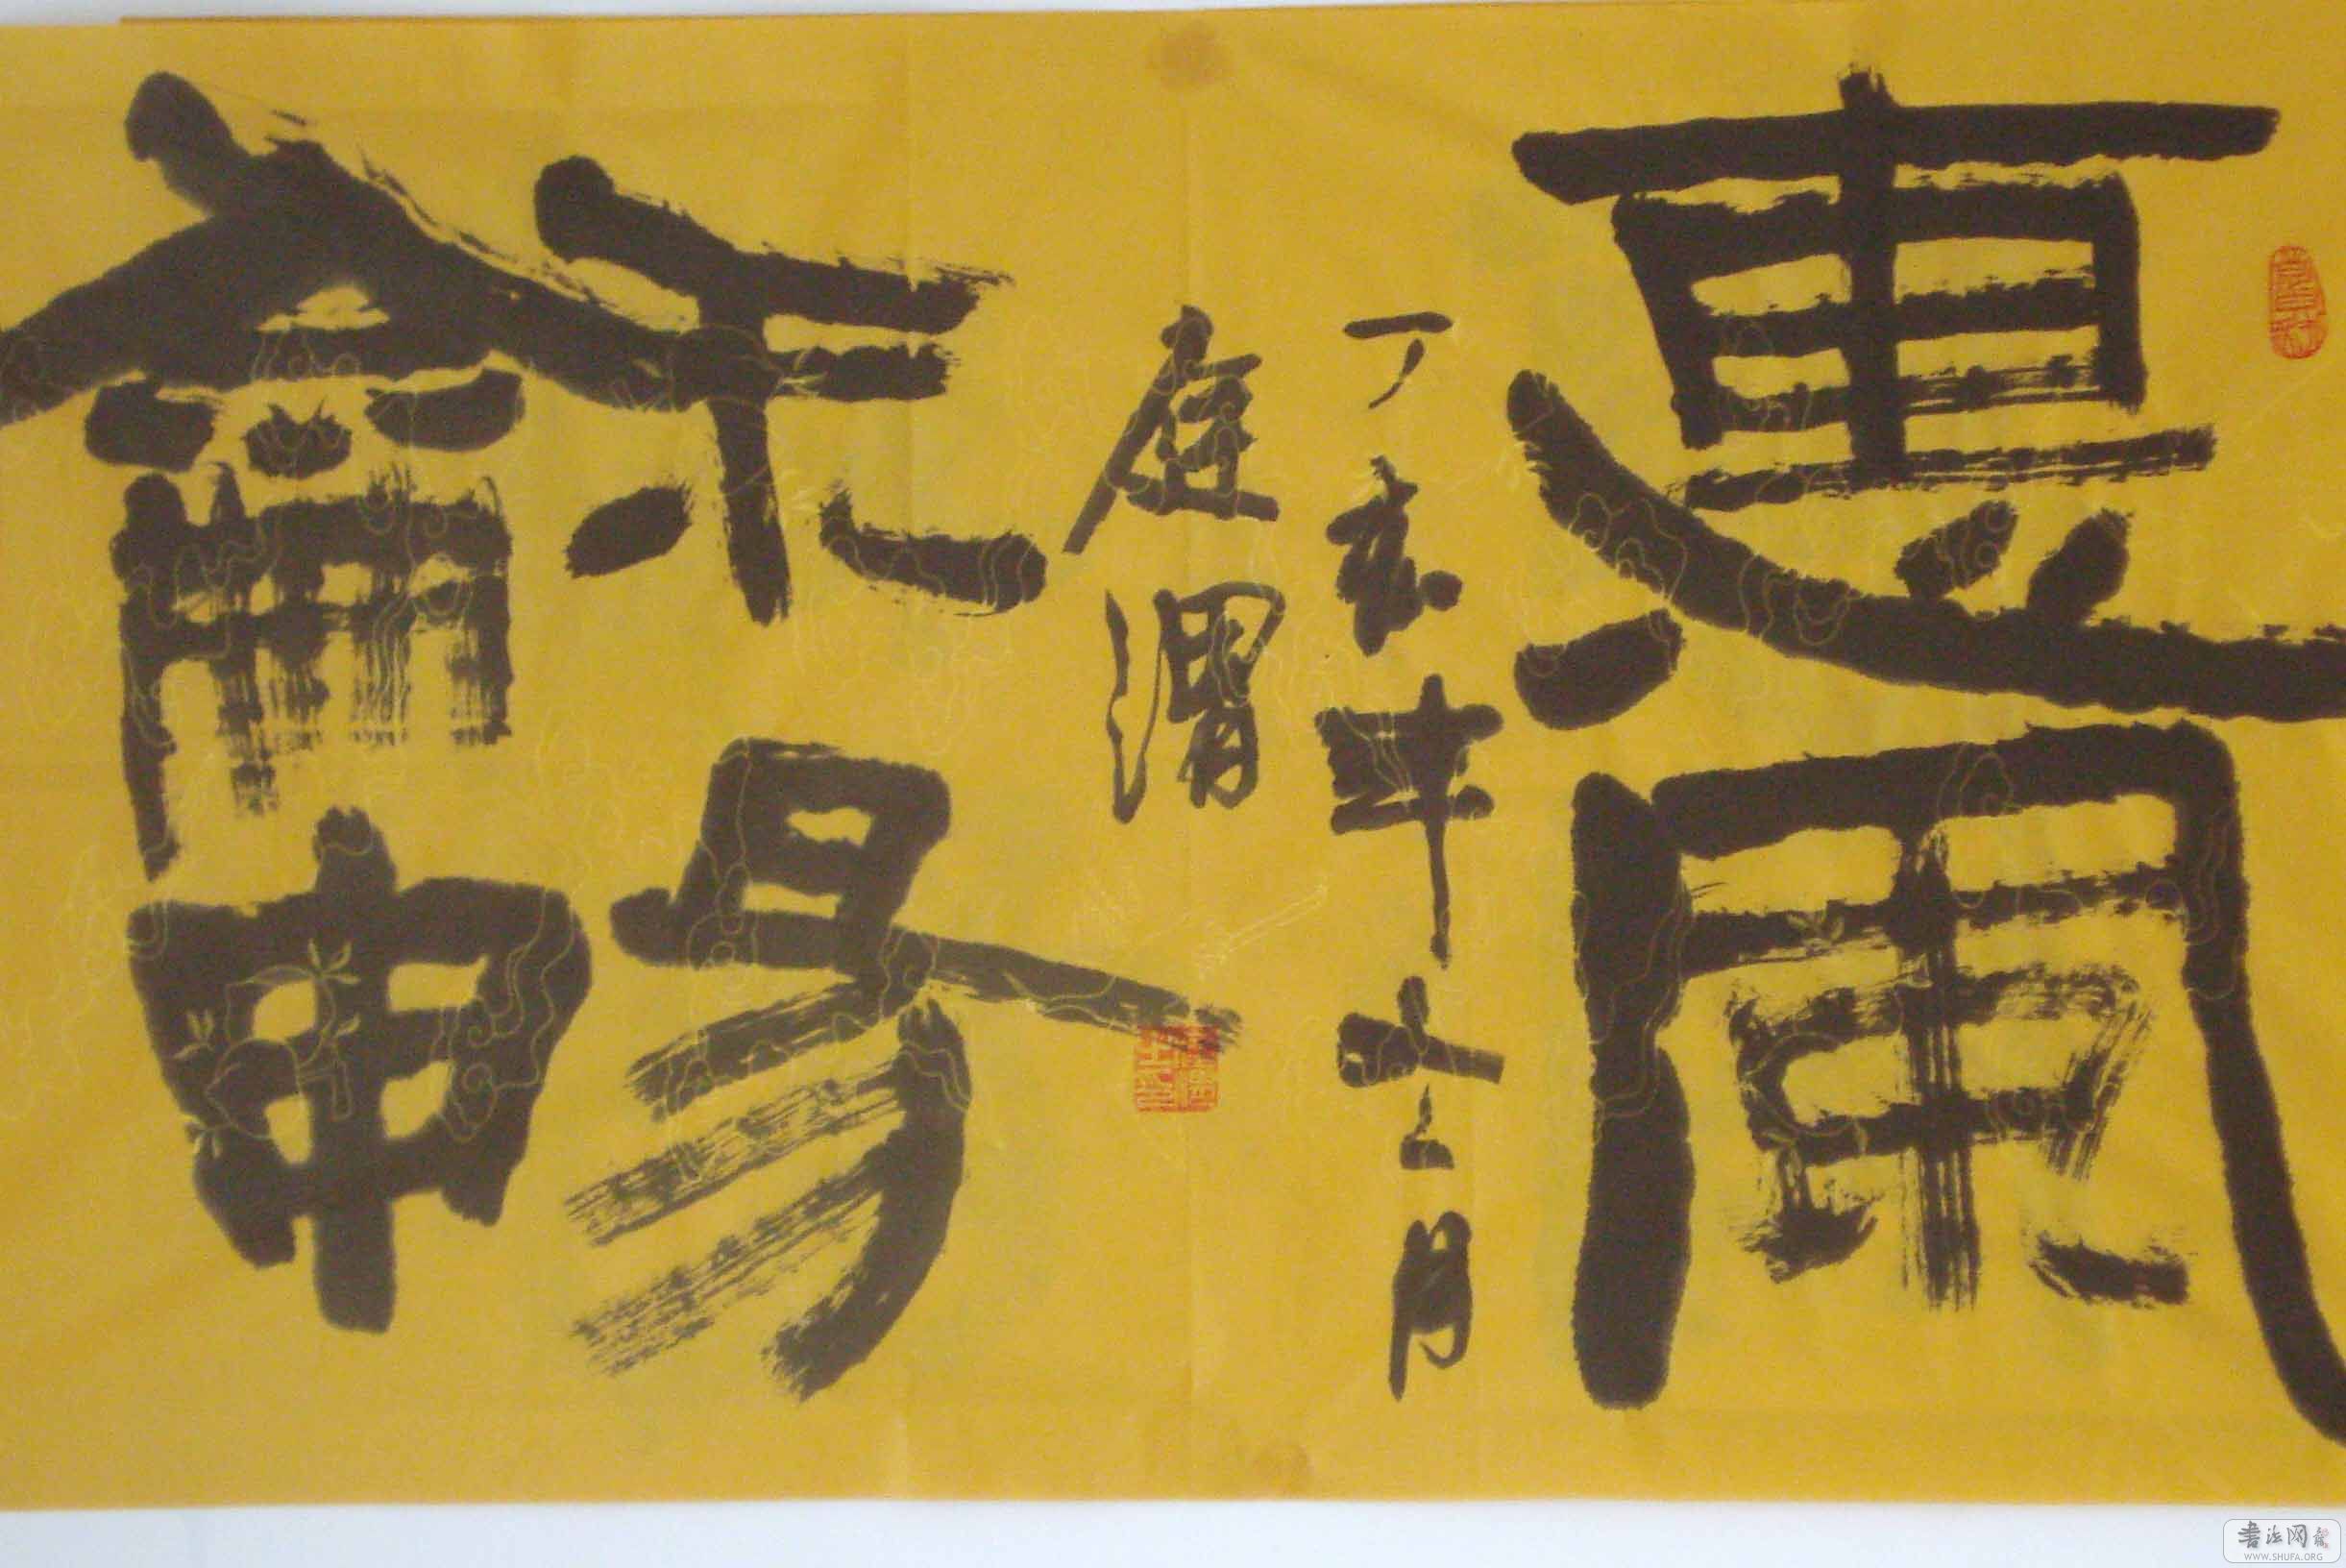 惠風
龢暢
丁亥年十二月
庭渭
书法网
WWW.SHUFA.ORG